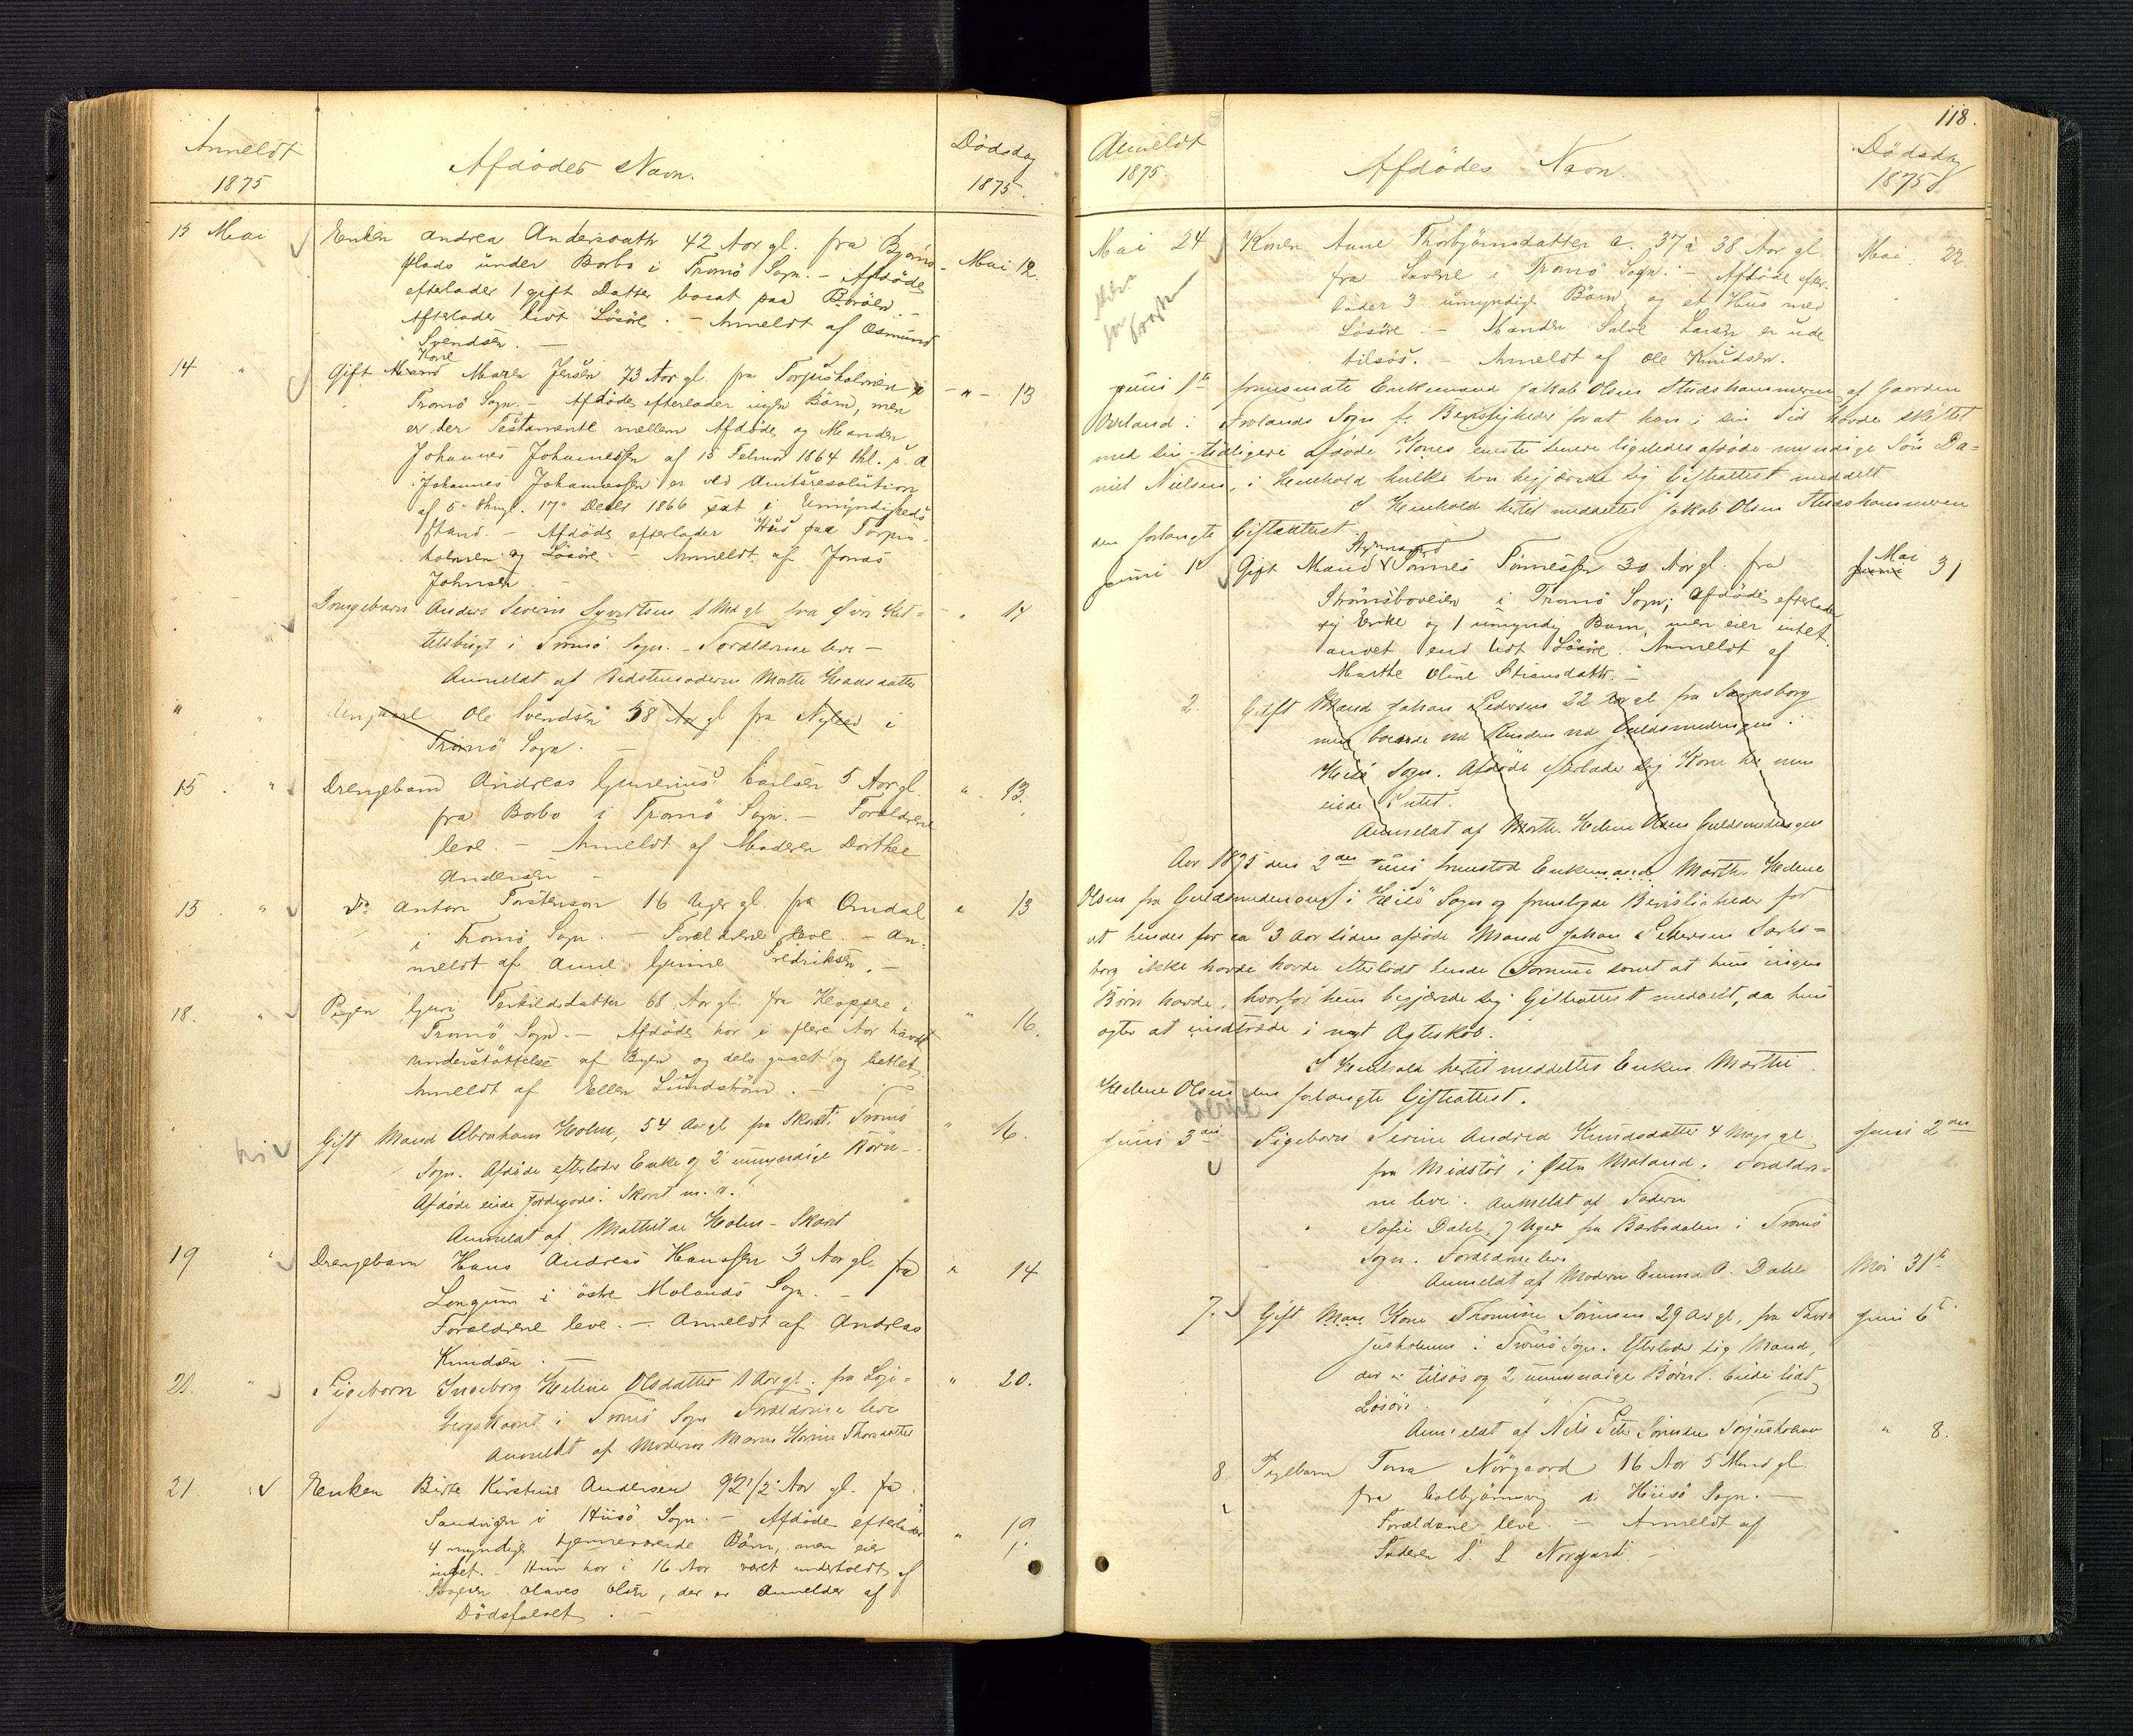 Anmeldt
1875
Afdödes Navn.
Dödsdag
1875.
13 Mai
Enken Andrea Andersdattr 42 Aar gl. fra Björns-
plads under Barbo i Tromö Sogn. - Afdöde
efterlader 1 gift Datter bosat paa Boröen. -
Efterlader lidt Lösöre. - Anmeldt af Osmund
Svendsen. -
Mai 12.
14 "
Gift Mand Kone Maren Jensen 73 Aar gl. fra Torjusholmen i
Tromö Sogn. - Afdöde efterlader ingen Börn, men
er der Testamente mellem Afdöde og Manden
Johannes Johannessen af 15 Februar 1864
Johannes Johannessen er ved Amtsresolution
af 5" thingl. 17" Decbr 1866 sat i Umyndigheds
Stand. - Afdöde efterlader Hus paa Torjus-
holmen og Lösöre. - Anmeldt af Jonas
Johnsen. -
" - 13
Drengebarn Anders Severin Syvertsen 1 Md gl fra Övre Kit-
telsbugt i Tromö Sogn. - Forældrene leve -
Anmeldt af Bedstemoderen Marthe Hansdatter
" 14
" "
Ungkarl Ole Svendsen 58 Aar gl fra Nylund i
Tromö Sogn. -
15 . "
Drengebarn Andreas Gunerius Carlsen 5 Aar gl.
fra Barbo i Tromö Sogn. - Forældrene
leve. - Anmeldt af Moderen Dorthee
Andersen -
" 13.
15 . "
Do Anton Torstenson 16 Uger gl. fra Omdal
i Tromö Sogn. - Forældrene leve. - An-
meldt af Anne Gunie Fredriksen. -
" 13
18. "
Pigen Guri Terkildsdatter 68 Aar gl. fra Kloppene i
Tromö Sogn. - Afdöde har i flere Aar havdt
understöttelse af Byen og dels gaaet og betlet.
Anmeldt af Ellen Lundström. -
" 16.
Gift Mand Abraham Holm, 54 Aar gl fra Skaret i Tromö
Sogn. Afdöde efterlader Enke og 2 umyndige Börn -
Afdöde eiede Jordegods i Skaret m. v.
Anmeldt af Mathilde Holm - Skaret
" 16.
19 "
Drengebarn Hans Andreas Hanssen 3 Aar gl. fra
Longum i östre Molands Sogn. -
Forældrene leve. - Anmeldt af Andreas
Knudsen. -
" 14
20. "
Pigebarn Ingeborg Helene Olsdatter 1 Aar gl. fra
i Tromö Sogn Forældrene leve
Anmeldt af Moderen Maren Thorsdatter
" 20.
21. "
Enken Birte Kirstine Andersen 92 1/2 Aar gl. fra
Sandvigen i Hisö Sogn. - Afdöde efterlader
4 myndige hjemmeværende Börn, men eier
intet. - Hun har i 16 Aar været underholdt af
Olaves Olsen, der er Anmelder af
Dödsfaldet. -
" 19
118.
Anmeldt
1875.
Afdödes Navn.
Dödsdag
1875
Mai 24
Konen Anne Thorbjörnsdatter c. 37 à 38 Aar gl
fra Savene i Tromö Sogn. - Afdöde efter-
lader 3 umyndige Börn og et Hus med
Lösöre. - Manden Salve Larsen er ude
tilsös. - Anmeldt af Ole Knudsen.
Mai 22
Juni 1te fremsendte Enkemand Jakob Olsen Stadshammeren af Gaarden
Overland i Frolands Sogn Bevisligheder for at han i sin Tid havde skiftet
med sin tidligere afdöde Kones eneste senere ligeledes afdöde myndige Sön Da-
niel Nielsen, i Henhold hvilke han begjærede sig Giftattest meddelt
I Henhold hertil meddeltes Jakob Olsen Stadshammeren
den forlangte Giftattest.
Juni 1te
Gift Mand Styrmand Tönnes Tönnessen 30 Aar gl. fra
Strömsboveien i Tromö Sogn; Afdöde efterlader
sig Enke og 1 umyndig Barn, men eier intet
andet end lidt Lösöre. Anmeldt af
Marthe Oline Stiansdattr. -
Juni Mai 31
2.
Gift Mand Johan Pedersen 22 Aar gl fra Sarpsborg
men boende ved Renden ved Guldsmedengen i
Hisö Sogn. Afdöde efterlader sig Kone
eiede Intet.
Anmeldt af Marthe Helene Olsen Guldsmedengen
Aar 1875 den 2den Juni fremstod Enkemand Marthe Helene
Olsen fra Guldsmedengen i Hisö Sogn og fremlagde Bevisligheder for
at hendes for ca 3 Aar siden afdöde Mand Johan Pedersen Sarps-
borg ikke havde havde efterladt hende Formue samt at hun ingen
Börn havde, hvorfor hun begjærede sig Giftattest meddelt, da hun
agter at indtræde i nyt Ægteskab.
I Henhold hertil meddeltes Enken Marthe
Helene Olsen den forlangte Giftattest.
Juni 3die
Pigebarn Serine Andrea Knudsdatter 4 gl
fra Midstöl i Östre Moland. Forældre-
ne leve. Anmeldt af Faderen
Juni 2den
Sofie Dahl 7 Uger fra Barbodalen i Tromö
Sogn. Forældrene leve
Anmeldt af Moderen Emma A. Dahl
Mai 31te
7.
Gift Kone Thomine Sörensen 29 Aar gl, fra Thor-
jusholmen i Tromö Sogn. Efterlader sig Mand,
der er tilsös og 2 umyndige Börn. Eiede lidt
Lösöre.
Anmeldt af Nils Peter Sörensen Torjusholmen
Juni 6te
8
Pigebarn Tora Nörgaard 16 Aar 5 Mnd gl.
fra Colbjörnsvig i Hiisö Sogn. -
Forældrene leve. - Anmeldt af
Faderen S. L. Norgard. -
" 8.